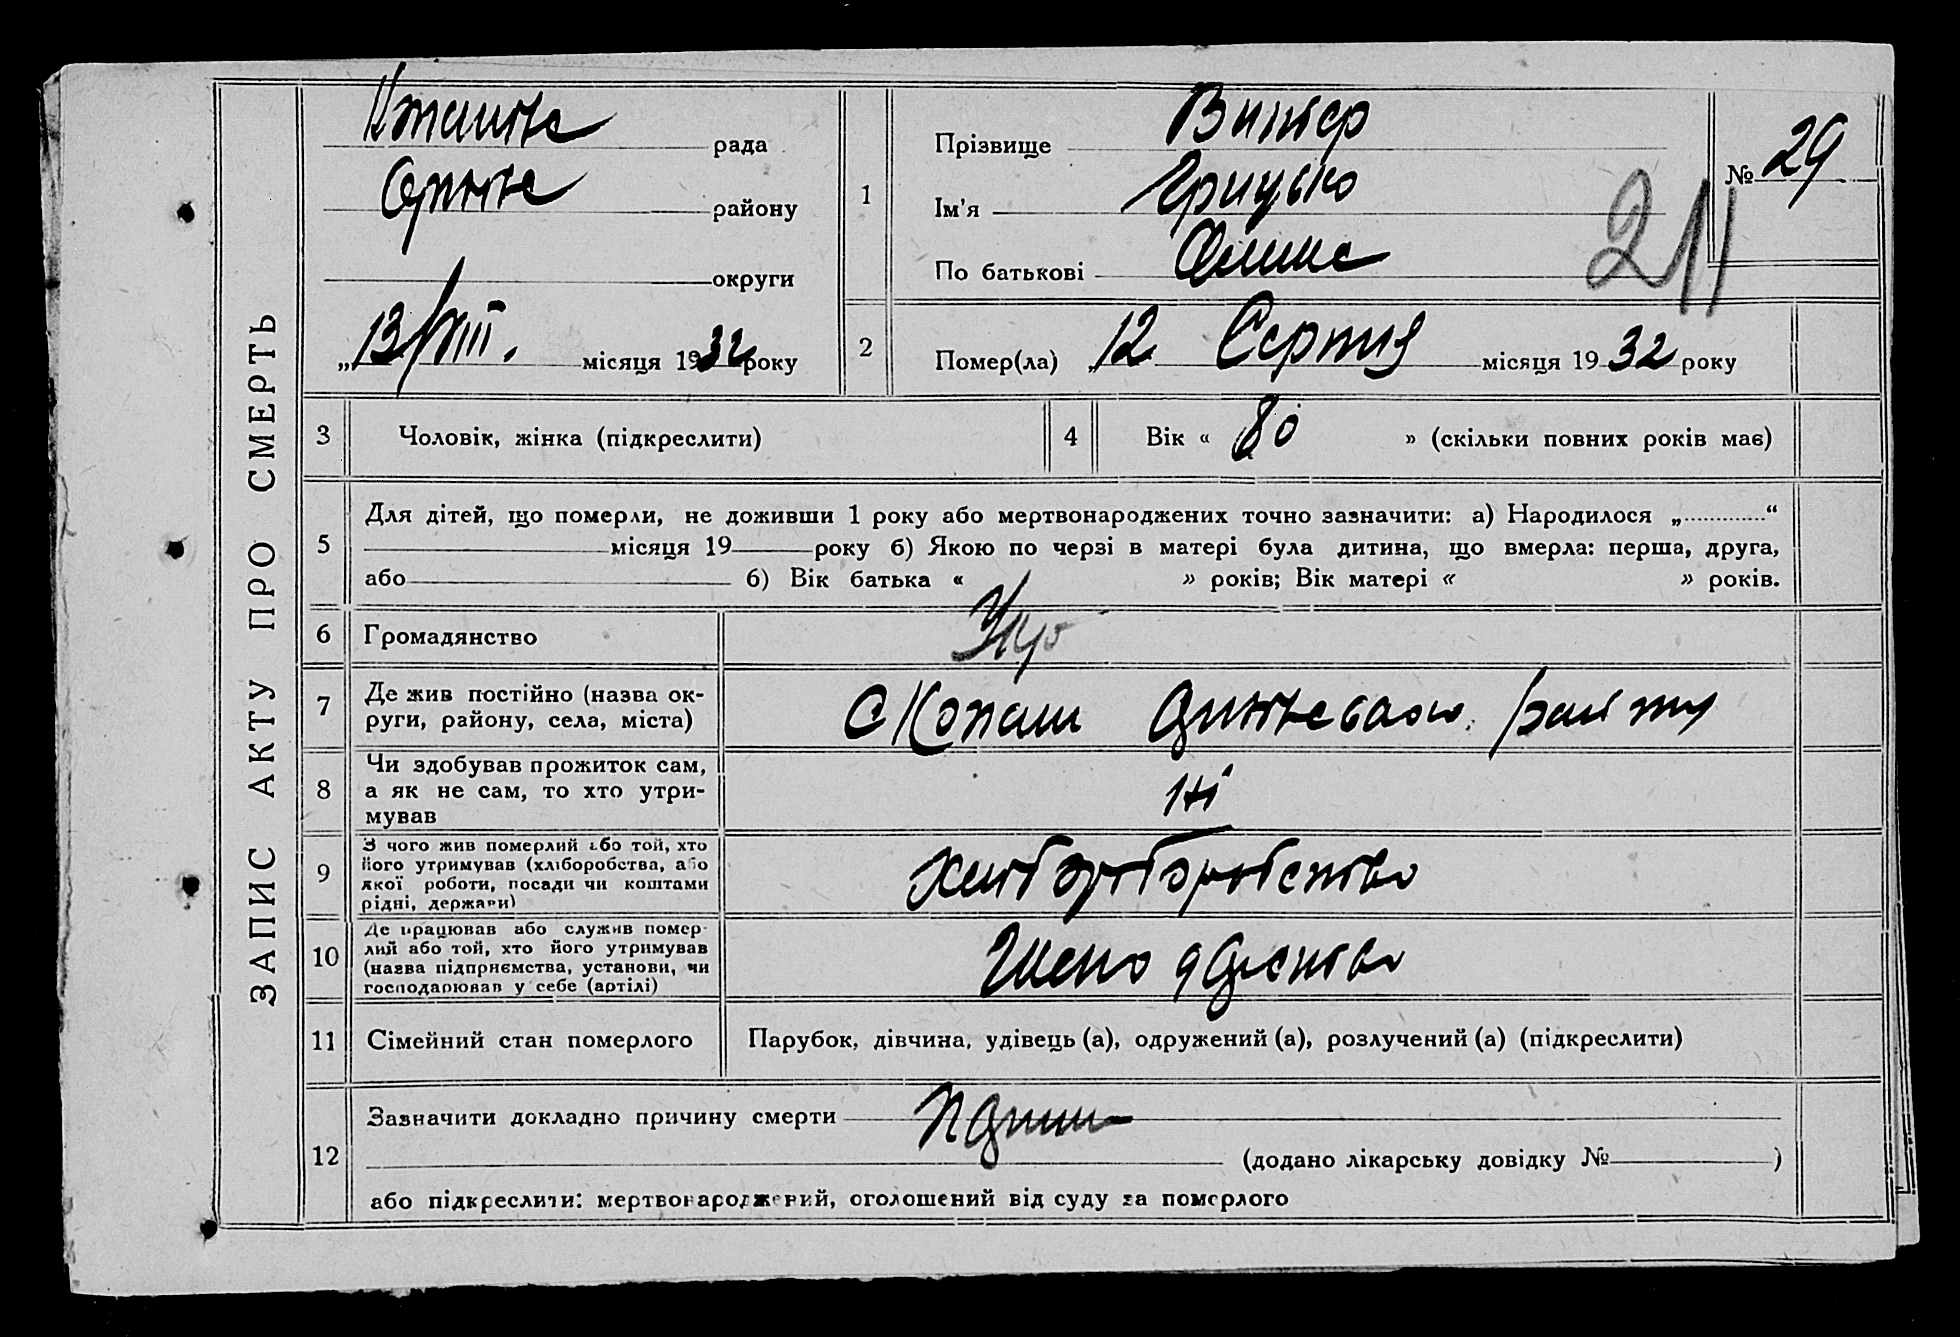 ЗАПИС АКТУ ПРО СМЕРТЬ
рада
району
округи
„13/VIII. місяця 1932 року
1
Прізвище Вінтер
Ім'я Грицько
По батькові
№ 29
211
2
Помер(ла) „12 Серпня місяця 1932 року
3
Чоловік, жінка (підкреслити)
4
Вік « 80 » (скільки повних років має)
5
Для дітей, що померли, не доживши 1 року або мертвонароджених точно зазначити: а) Народилося „ “
місяця 19 року б) Якою по черзі в матері була дитина, що вмерла: перша, друга,
або б) Вік батька « » років; Вік матері « » років.
6
Громадянство
7
Де жив постійно (назва ок-
руги, району, села, міста)
с Копаш
8
Чи здобував прожиток сам,
а як не сам, то хто утри-
мував
Ні
9
З чого жив померлий або той, хто
його утримував (хліборобства, або
якої роботи, посади чи коштами
рідні, держави)
10
Де працював або служив помер-
лий або той, хто його утримував
(назва підприємства, установи, чи
господарював у себе (артілі)
11
Сімейний стан померлого
Парубок, дівчина, удівець (а), одружений (а), розлучений (а) (підкреслити)
12
Зазначити докладно причину смерти
(додано лікарську довідку № )
або підкреслити: мертвонароджений, оголошений від суду за померлого